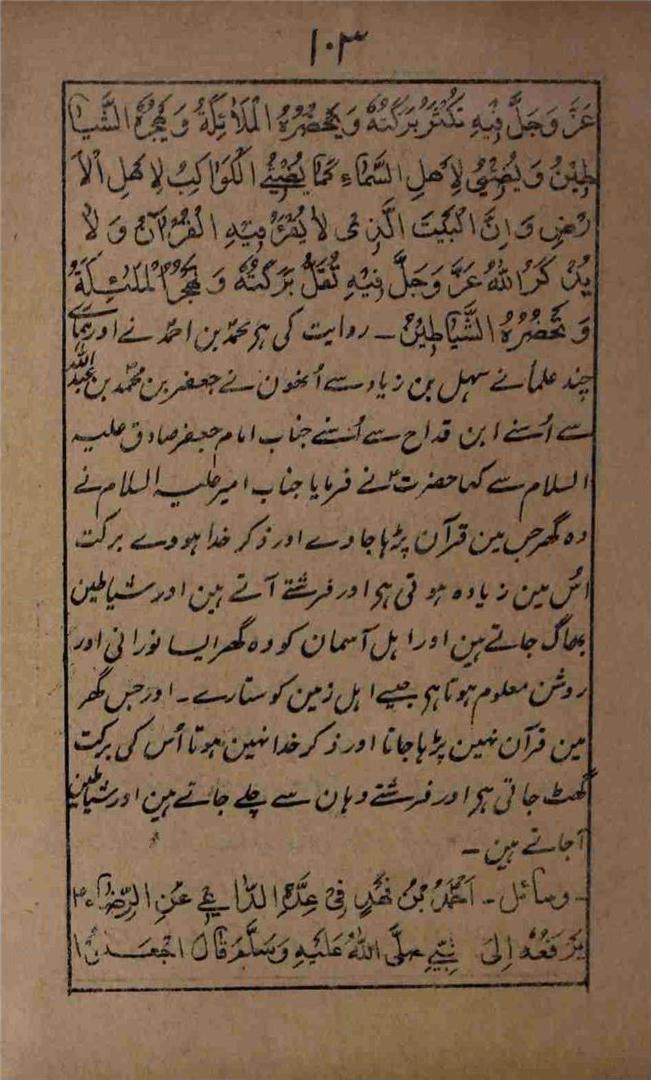 ۱۰۳
عَزَّ وَجَلَّ فِیْهِ تَکْثُرُ بَرَکَتُهٗ وَیَحْضُرُهُ الْمَلَائِکَةُ وَیَهْجُرُهُ الشَّیَا
طِیْنُ وَیُضِیْیُٔ لِاَهْلِ السَّمَاءِ کَمَا یُضِیْیُٔ الْکَوَاکِبُ لِاَهْلِ الْاَ
رْضِ وَاِنَّ الْبَیْتَ الَّذِیْ لَا یُقْرَءُ فِیْهِ الْقُرْاٰنُ وَلَا
یُذْکَرُ اللّٰهُ عَزَّ وَجَلَّ فِیْهِ تُقَلُّ بَرَکَتُهٗ وَتَهْجُرُهُ الْمَلٰئِکَةُ
وَتَحْضُرُهُ الشَّیَاطِیْنُ ۔ روایت کی ہی محمد بن احمد نے اور ہمارے
چند علمانے سہل بن زیاد سے اُنھون نے جعفر بن محمد بن عبد اللہ
سے اُسنے ابن قداح سے اُسنے جناب امام جعفر صادق علیہ
السلام سے کہا حضرت نے فرمایا جناب امیر علیہ السلام نے
وہ گھر جس مین قرآن پڑہا جاوے اور ذکر خدا ہووے برکت
اُس مین زیادہ ہوتی ہی اور فرشتے آتے ہین اور شیاطین
بھاگ جاتے ہین اور اہل آسمان کو وہ گھر ایسا نورانی اور
روشن معلوم ہوتا ہی جیسے اہل زمین کو ستارے ۔ اور جس گھر
مین قرآن نہین پڑہا جاتا اور ذکر خدا نہین ہوتا اُس کی برکت
گھٹ جاتی ہی اور فرشتے وہان سے چلے جاتے ہین اور شیاطین
آجاتے ہین ۔
۔ وسائل ۔ اَحْمَدُ بْنُ فَهْدٍ فِیْ عِدَّةِ الدَّاعِیْ عَنِ الرِّضَاءِ
یَرْفَعُهٗ اِلَی نَبِیِّ صَلَّی اللّٰهُ عَلَیْهِ وَسَلَّمَ قَالَ اجْعَلُوْا